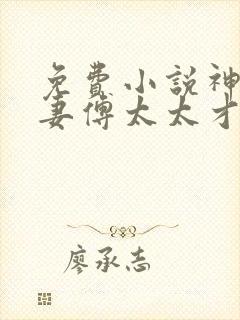 免費小説神
妻傅太太才
廖承志